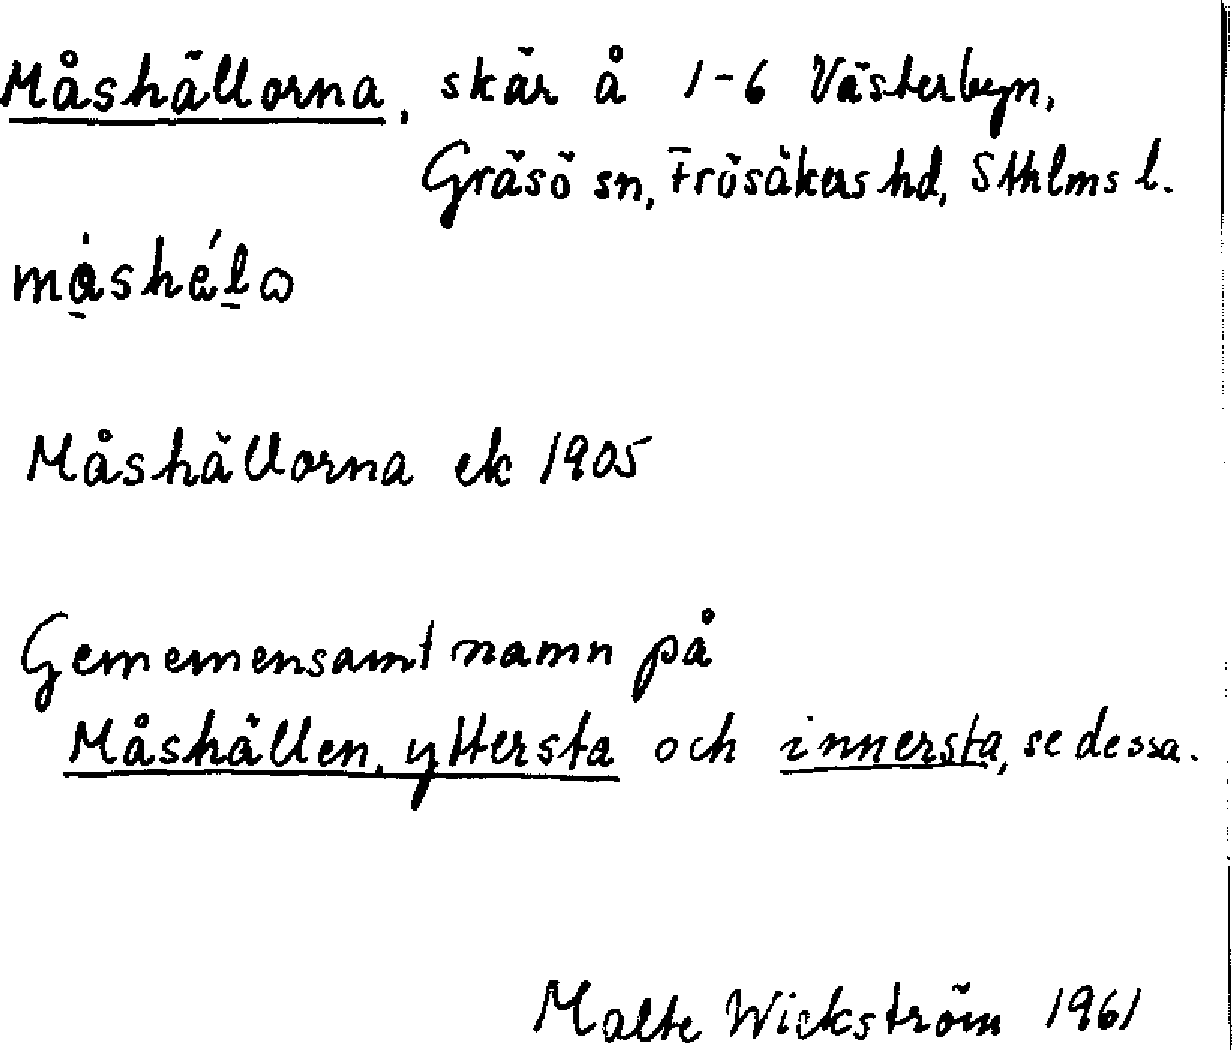 Måshällorna, skär å 1-6 Västerbyn,
Gräsö sn, Frösåkers hd, Sthlms l.
Måshällorna ek 1905
Gememensamt namn på
Måshällen, yttersta och innersta, se dessa.
Malte Wickström 1961